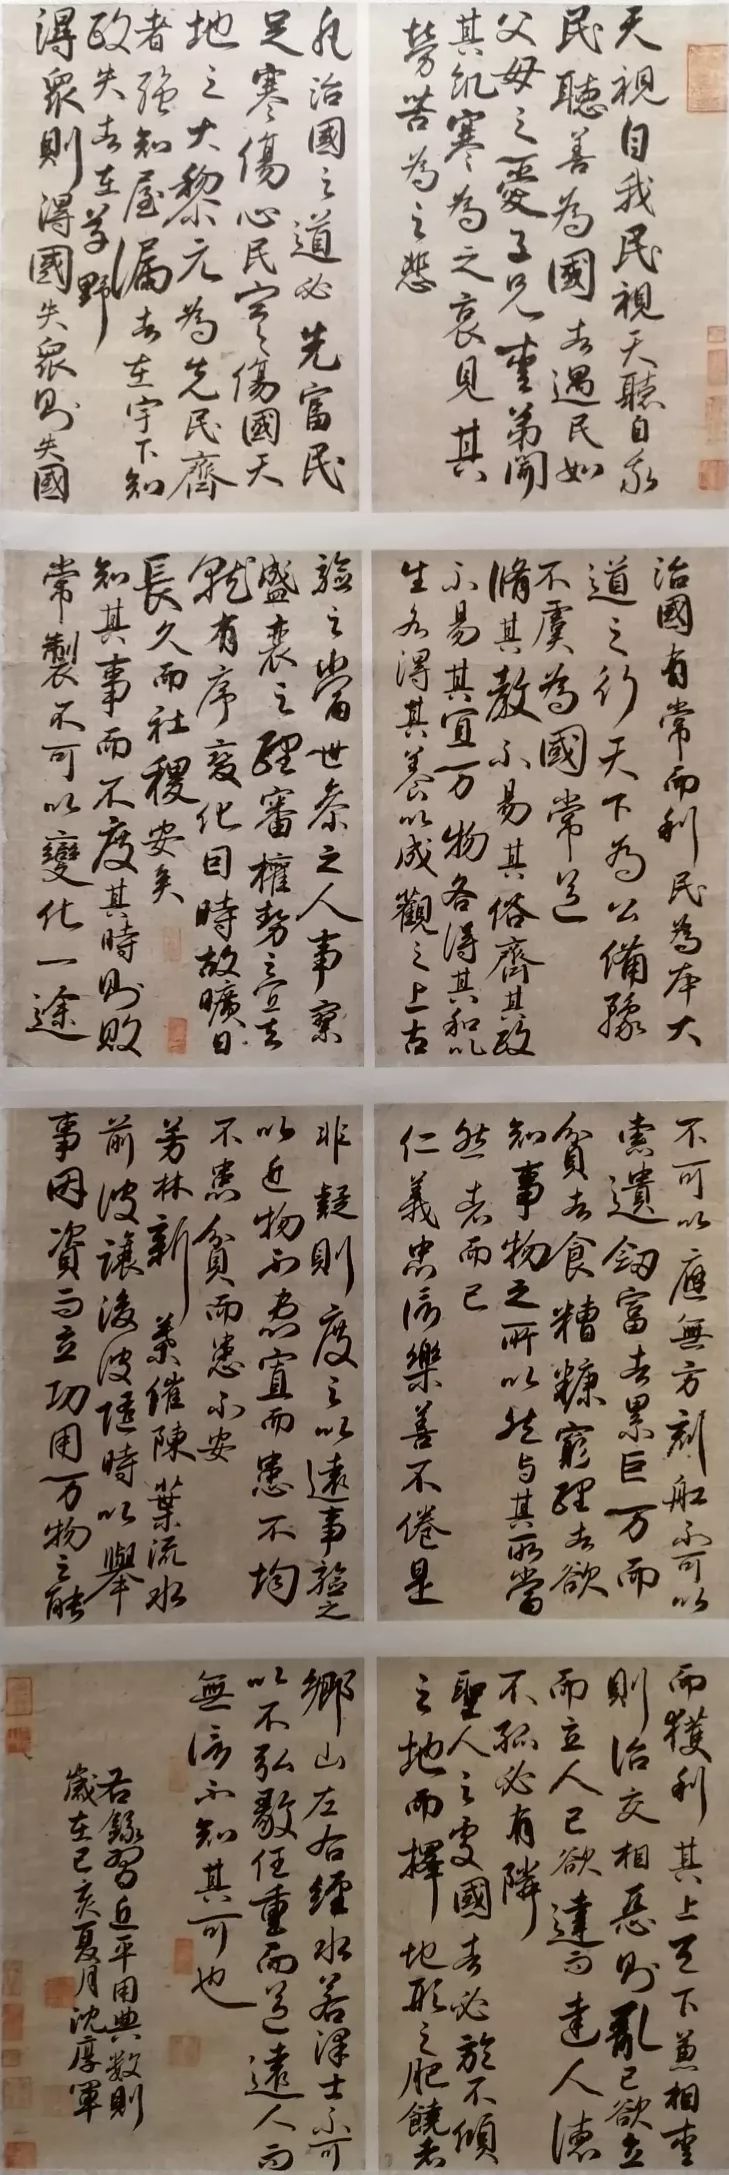 天視自我民視天聽自我
民聽善為國者遇民如
父母之愛子兄之愛弟聞
其飢寒為之哀見其
勞苦為之悲
凡治國之道必先富民
足寒傷心民寒傷國天
地之大黎元為先民齊
者強知屋漏者在宇下知
政失者在草野
得眾則得國失眾則失國
治國有常而利民為本大
道之行天下為公備豫
不虞為國常道
脩其教不易其俗齊其政
不易其宜萬物各得其和以
生各得其養以成觀之上古
驗之當世參之人事察
盛衰之理審權勢之宜去
就有序變化因時故曠日
長久而社稷安矣
知其事而不度其時則敗
常製不可以變化一途
不可以應無方刻船不可以
索遺劍富者累巨万而
貧者食糟糠窮理者欲
知事物之所以然与其所當
然者而已
仁義忠信樂善不倦是
非疑則度之以遠事驗之
以近物不患寡而患不均
不患貧而患不安
芳林新葉催陳葉流水
前波讓後波隨時以舉
事因資而立功用万物之能
而獲利其上天下兼相愛
則治交相惡則亂己欲立
而立人己欲達而達人德
不孤必有隣
聖人之處國者必於不傾
之地而擇地形之肥饒者
鄉山左右經水若澤士不可
以不弘毅任重而道遠人而
無信不知其可也
右錄習近平用典數則
歲在己亥夏月沈厚軍